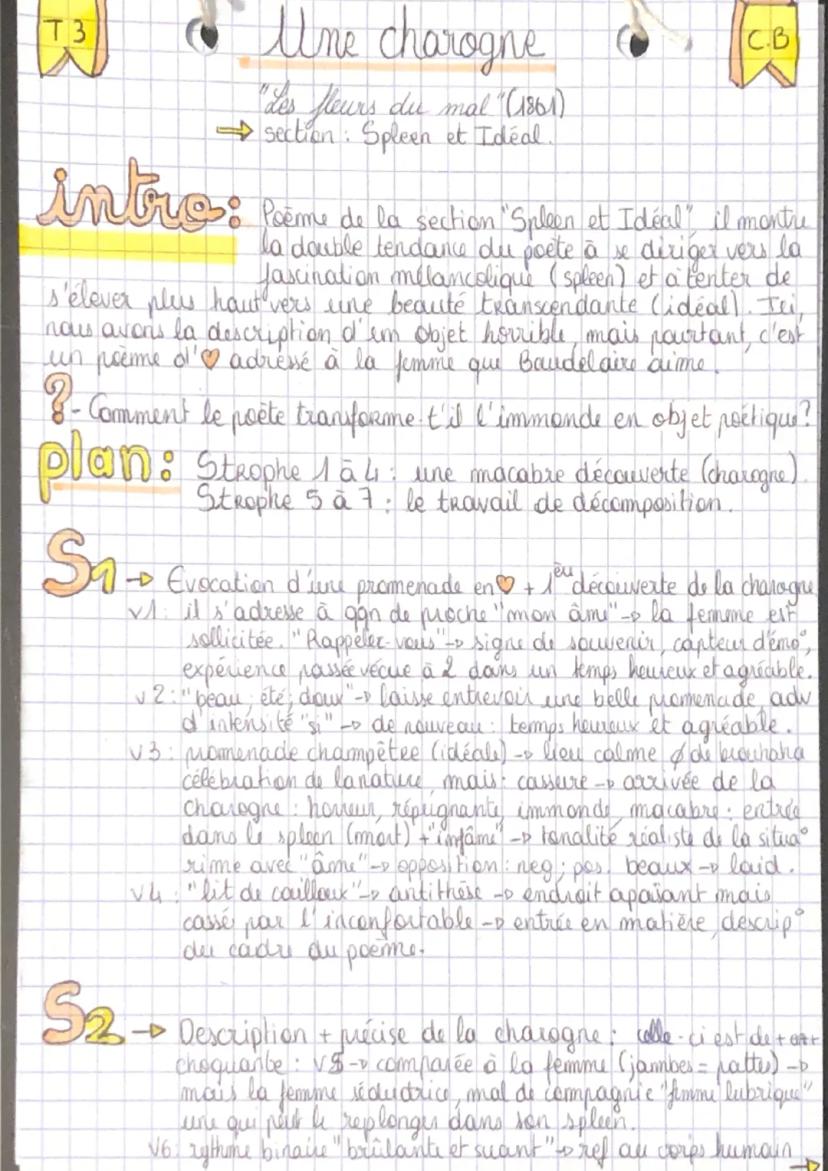 T3
Une charogne
C.B
"Les fleurs du mal" (1861)
→ section : Spleen et Idéal.
intro : Poème de la section "Spleen et Idéal", il montre
la double tendance du poète à se diriger vers la
fascination mélancolique (spleen) et à tenter de
s'élever plus haut vers une beauté transcendante (idéal). Ici,
nous avons la description d'un objet horrible, mais pourtant, c'est
un poème d'♡ adressé à la femme que Baudelaire aime.
? - Comment le poète transforme-t'il l'immonde en objet poétique?
plan : Strophe 1 à 4 : une macabre découverte (charogne).
Strophe 5 à 7 : le travail de décomposition.
S1 → Evocation d'une promenade en ♡ + 1ère découverte de la charogne
v1 : il s'adresse à qqn de proche "mon âme" → la femme est
sollicitée. "Rappelez-vous" → signe de souvenir, capteur d'émo°,
expérience passée vécue à 2 dans un temps heureux et agréable.
v2 : "beau ; été ; doux" → laisse entrevoir une belle promenade, adv
d'intensité "si" → de nouveau : temps heureux et agréable.
v3 : promenade champêtre (idéale) → lieu calme ∅ de brouhaha
célébration de la nature, mais : cassure → arrivée de la
charogne : horreur, répugnante, immonde, macabre : entrée
dans le spleen (mort) + "infâme" → tonalité réaliste de la situa°
rime avec "âme" → opposition : neg ; pos. beaux → laid.
v4 : "lit de cailloux" → antithèse → endroit apaisant mais
cassé par l'inconfortable → entrée en matière, descrip°
du cadre du poème.
S2 → Description + précise de la charogne : celle-ci est de + en +
choquante : v5 → comparée à la femme (jambes = pattes) →
mais la femme séductrice, mal de compagnie "femme lubrique"
une qui peut le replonger dans son spleen.
v6 : rythme binaire "brûlante et suant" → ref au corps humain
→